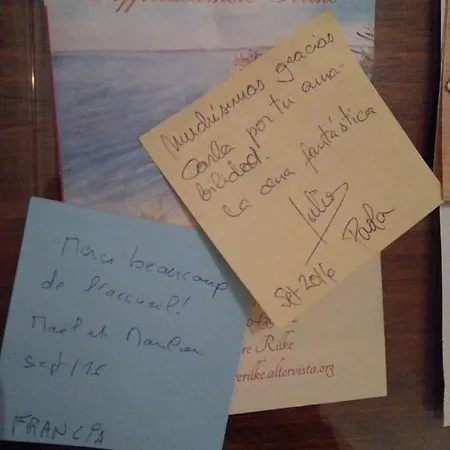 Rilke
Muchísimas gracias
Carla por tu ama-
bilidad!
La cena fantástica
Julio
Paola
Sept 2016
Merci beaucoup
de l'accueil!
Mael et
Sept/16
FRANCIA
re Rilke
erilke.altervista.org